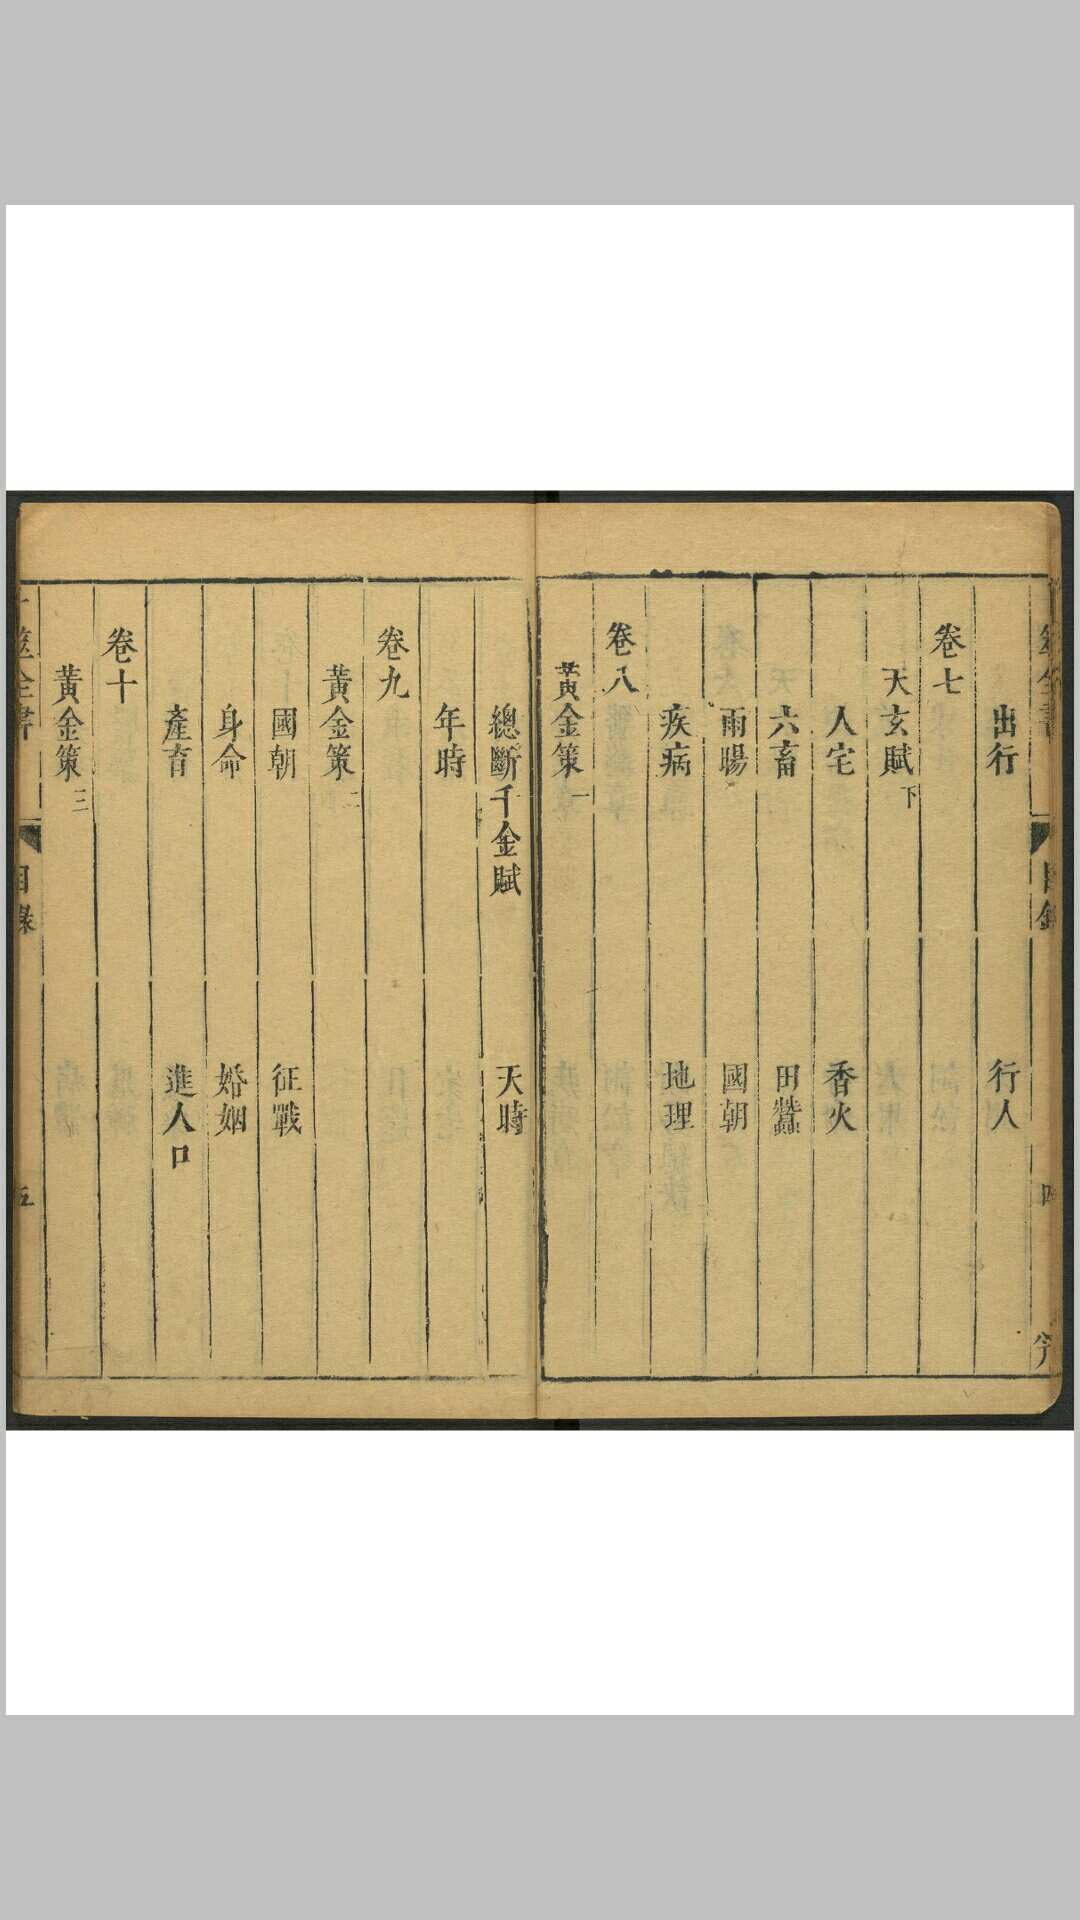 出行 行人
卷七
天玄賦下
人宅 香火
六畜 田蠶
雨暘 國朝
疾病 地理
卷八
黃金策一
總斷千金賦 天時
年時
卷九
黃金策二
國朝 征戰
身命 婚姻
產育 進人口
卷十
黃金策三
目錄
五